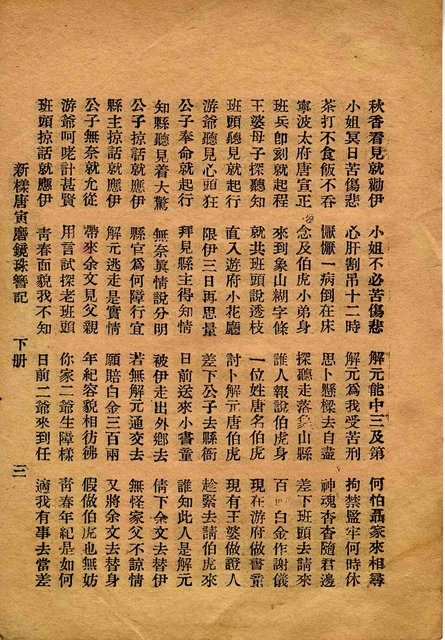 秋香看見就勸伊 小姐不必苦傷悲 解元能中三及第 何怕聶家來相尋
小姐冥日苦傷悲 心肝割吊十二時 解元為我受苦刑 拘禁監牢何時休
茶打不食飯不吞 懨懨一病倒在床 思卜懸樑去自盡 神魂杳杳隨君邊
寧波太府唐宣正 念及伯虎小弟身 探聽走落象山縣 差下班頭去請來
班兵即刻就起程 來到象山糊字條 誰人報說伯虎身 百白金作謝儀
王婆母子探聽知 就共班頭說透枝 一位姓唐名伯虎 現在游府做書童
班頭聽見就起行 直入遊府小花廳 討卜解元唐伯虎 現有王婆做證人
游爺聽見心頭狂 限伊三日再思量 差下公子去縣衙 趁緊去請伯虎來
公子奉命就起行 拜見縣主得知情 日前送來小書童 誰知此人是解元
知縣聽見着大驚 無奈眞情說分明 被伊走出外鄉去 倩下余文去替伊
公子掠話就應伊 縣官為何障行宜 若無解元通交去 無怪家父不諒情
縣主掠話就應伊 解元逃走是實情 願賠白金三百兩 又將余文去替伊
公子無奈就允從 帶來余文見父親 年紀容貌相彷彿 假做伯虎也無妨
游爺呵咾計甚賢 用言試探老班頭 你家二爺生障樣 青春年紀是如何
班頭掠話就應伊 青春面貌我不知 日前二爺來到任 適我有事去當差
新樣唐寅磨鏡珠簪記 下册 三